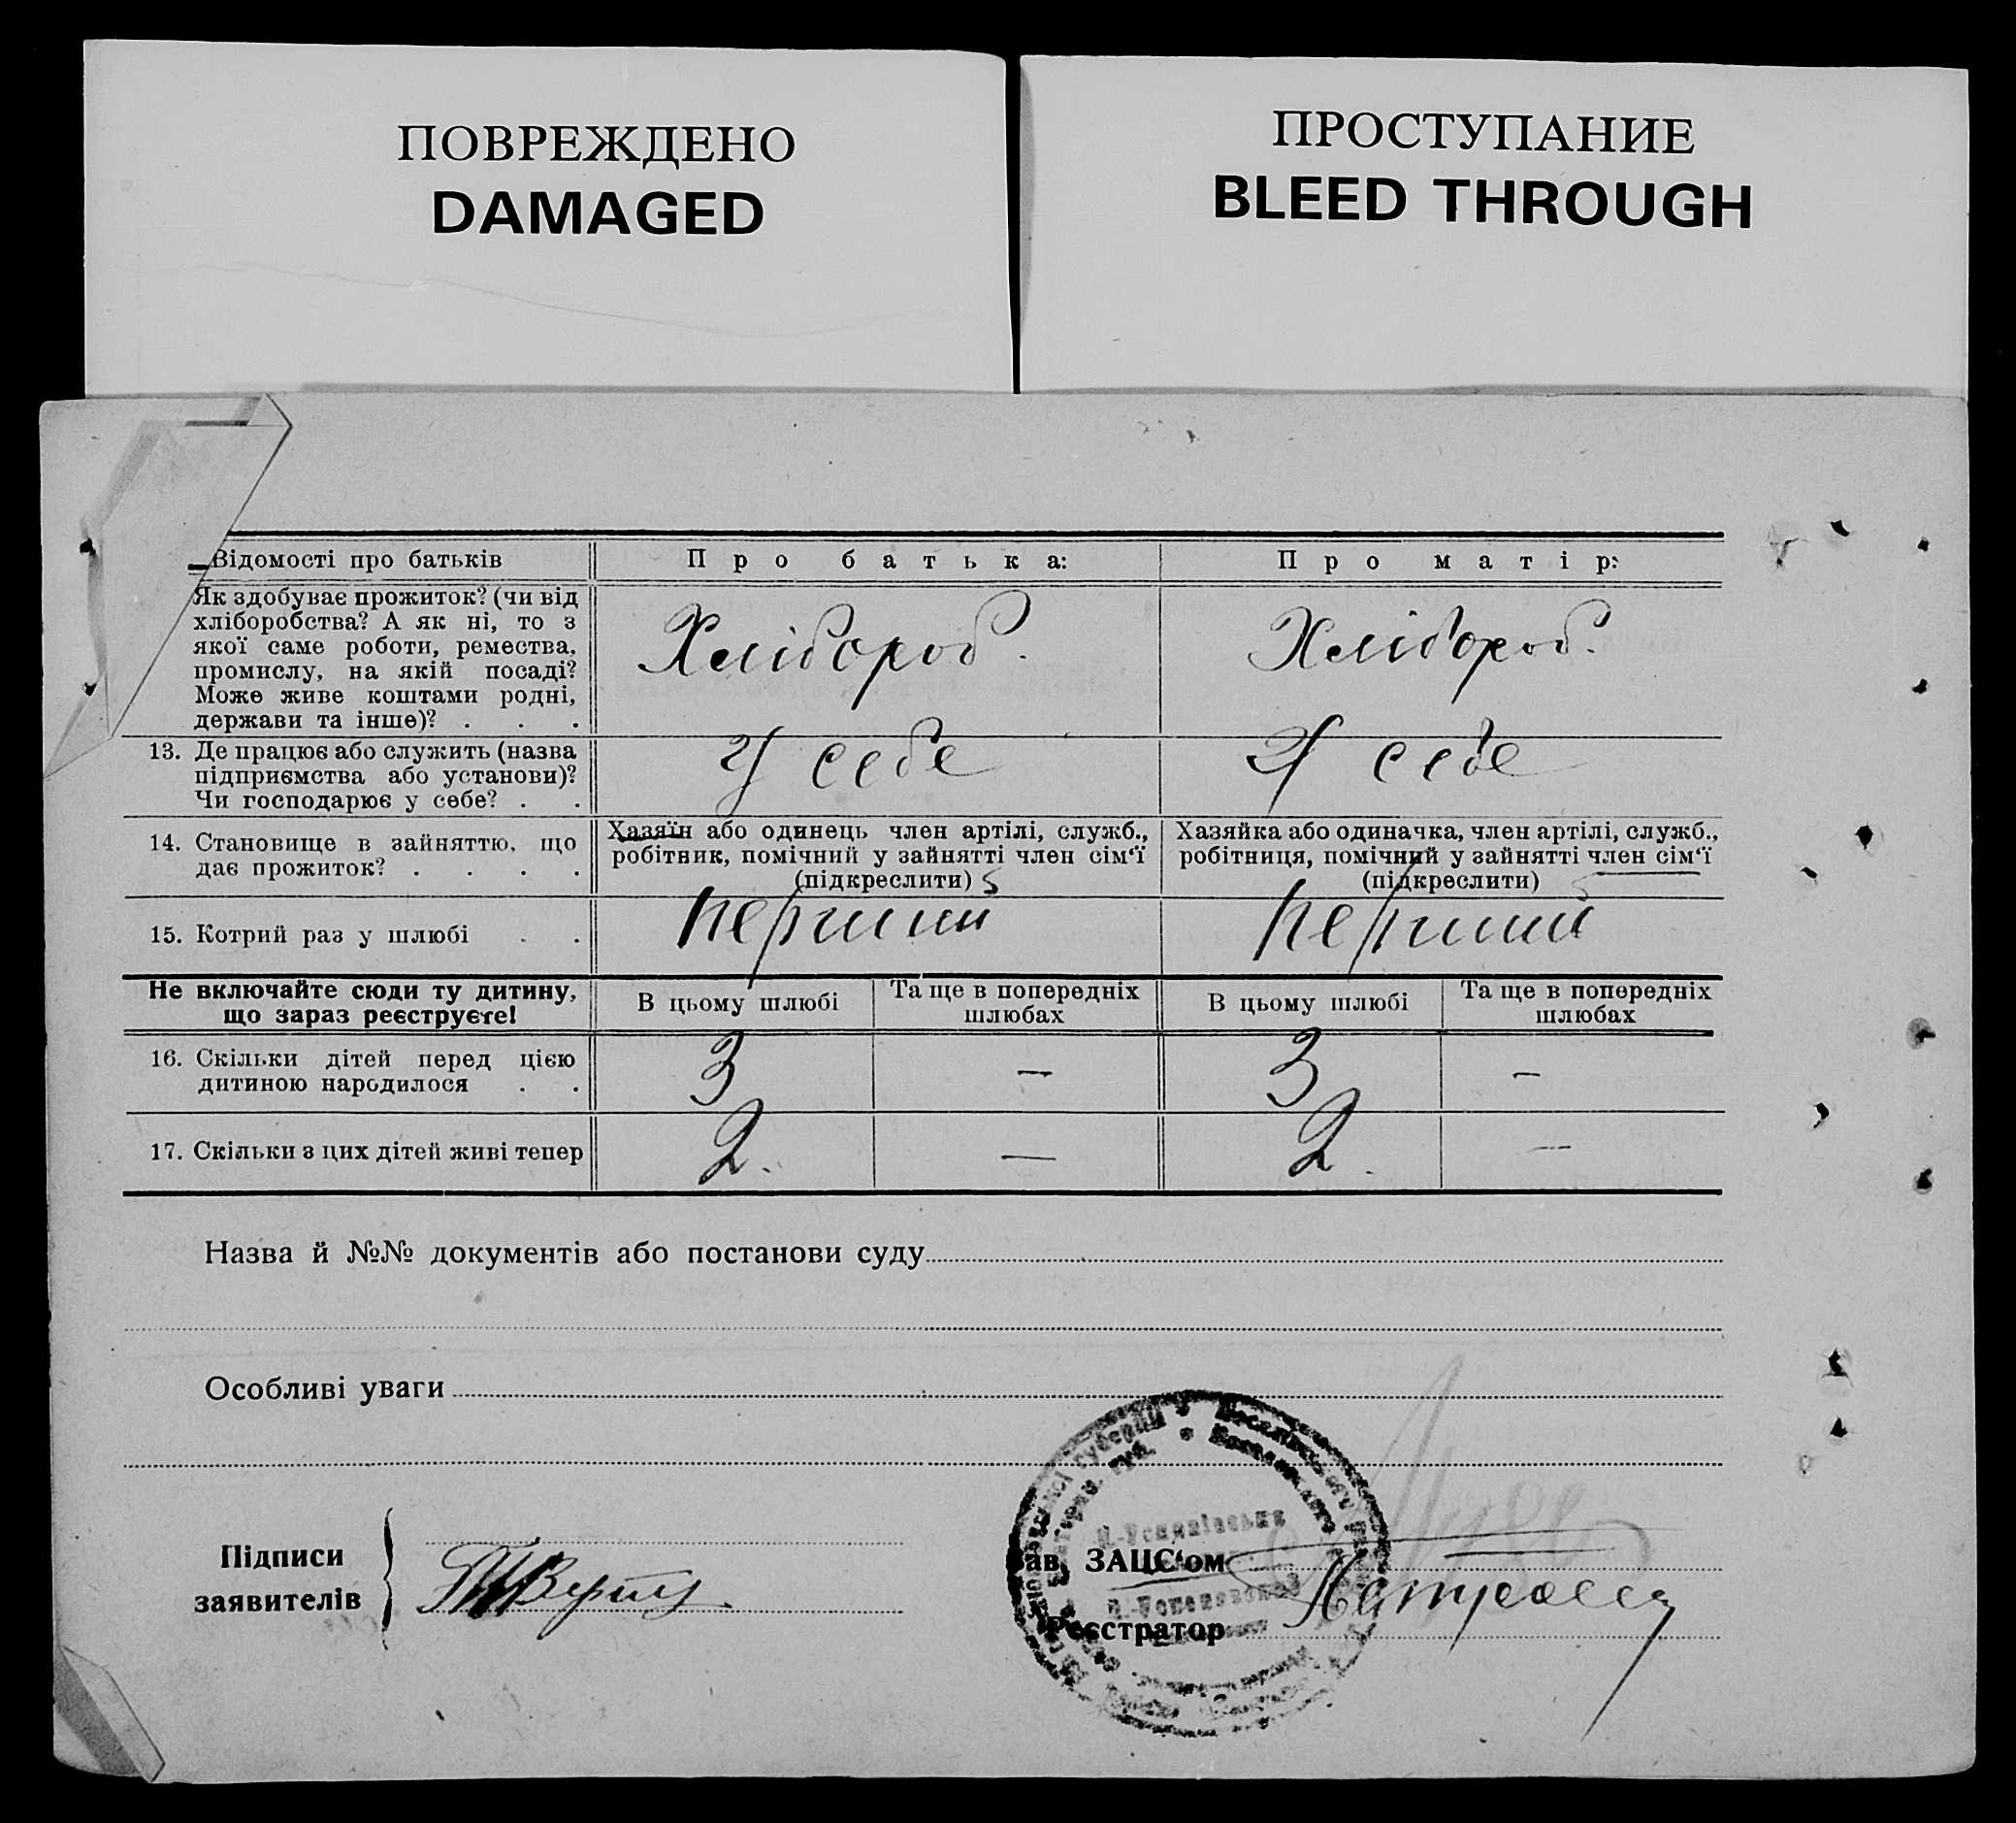 ПОВРЕЖДЕНО
DAMAGED
ПРОСТУПАНИЕ
BLEED THROUGH
Відомості про батьків
Про батька:
Про матір:
Як здобуває прожиток? (чи від
хліборобства? А як ні, то з
якої саме роботи, ремества,
промислу, на якій посаді?
Може живе коштами родні,
держави та інше)? . . .
Хлібороб.
Хлібороб.
13. Де працює або служить (назва
підприємства або установи)?
Чи господарює у себе? . .
У себе
У себе
14. Становище в зайняттю, що
дає прожиток? . . . .
Хазяїн або одинець член артілі, служб.,
робітник, помічний у зайнятті член сім‘ї
(підкреслити)
Хазяйка або одиначка, член артілі, служб.,
робітниця, помічний у зайнятті член сім‘ї
(підкреслити)
15. Котрий раз у шлюбі . .
перший
перший
Не включайте сюди ту дитину,
що зараз реєструєте!
В цьому шлюбі
Та ще в попередніх
шлюбах
В цьому шлюбі
Та ще в попередніх
шлюбах
16. Скільки дітей перед цією
дитиною народилося . .
3
—
3
—
17. Скільки з цих дітей живі тепер
2.
—
2.
—
Назва й №№ документів або постанови суду
Особливі уваги
Підписи
заявителів
Зав. ЗАЦС‘ом
Реєстратор